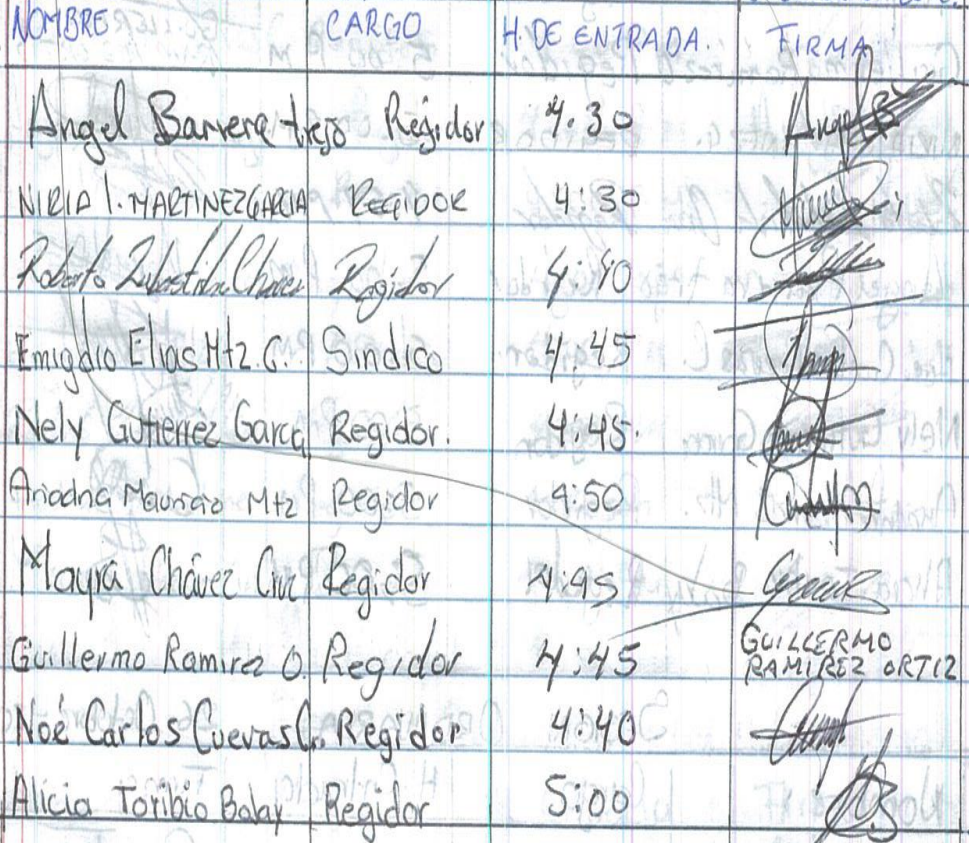 NOMBRE CARGO H. DE ENTRADA. FIRMA
Angel Barrera trejo Regidor 4:30
NIRIA I. MARTINEZ GARCIA REGIDOR 4:30
Roberto Chávez Regidor 4:40
Emigdio Elias Mtz. G. Sindico 4:45
Nely Gutierrez Garcia Regidor. 4:45.
Ariadna Mauricio Mtz Regidor 4:50
Mayra Chávez Cruz Regidor 4:45
Guillermo Ramirez O. Regidor 4:45 GUILLERMO
RAMIREZ ORTIZ
Noé Carlos Cuevas C. Regidor 4:40
Alicia Toribio Balay Regidor 5:00